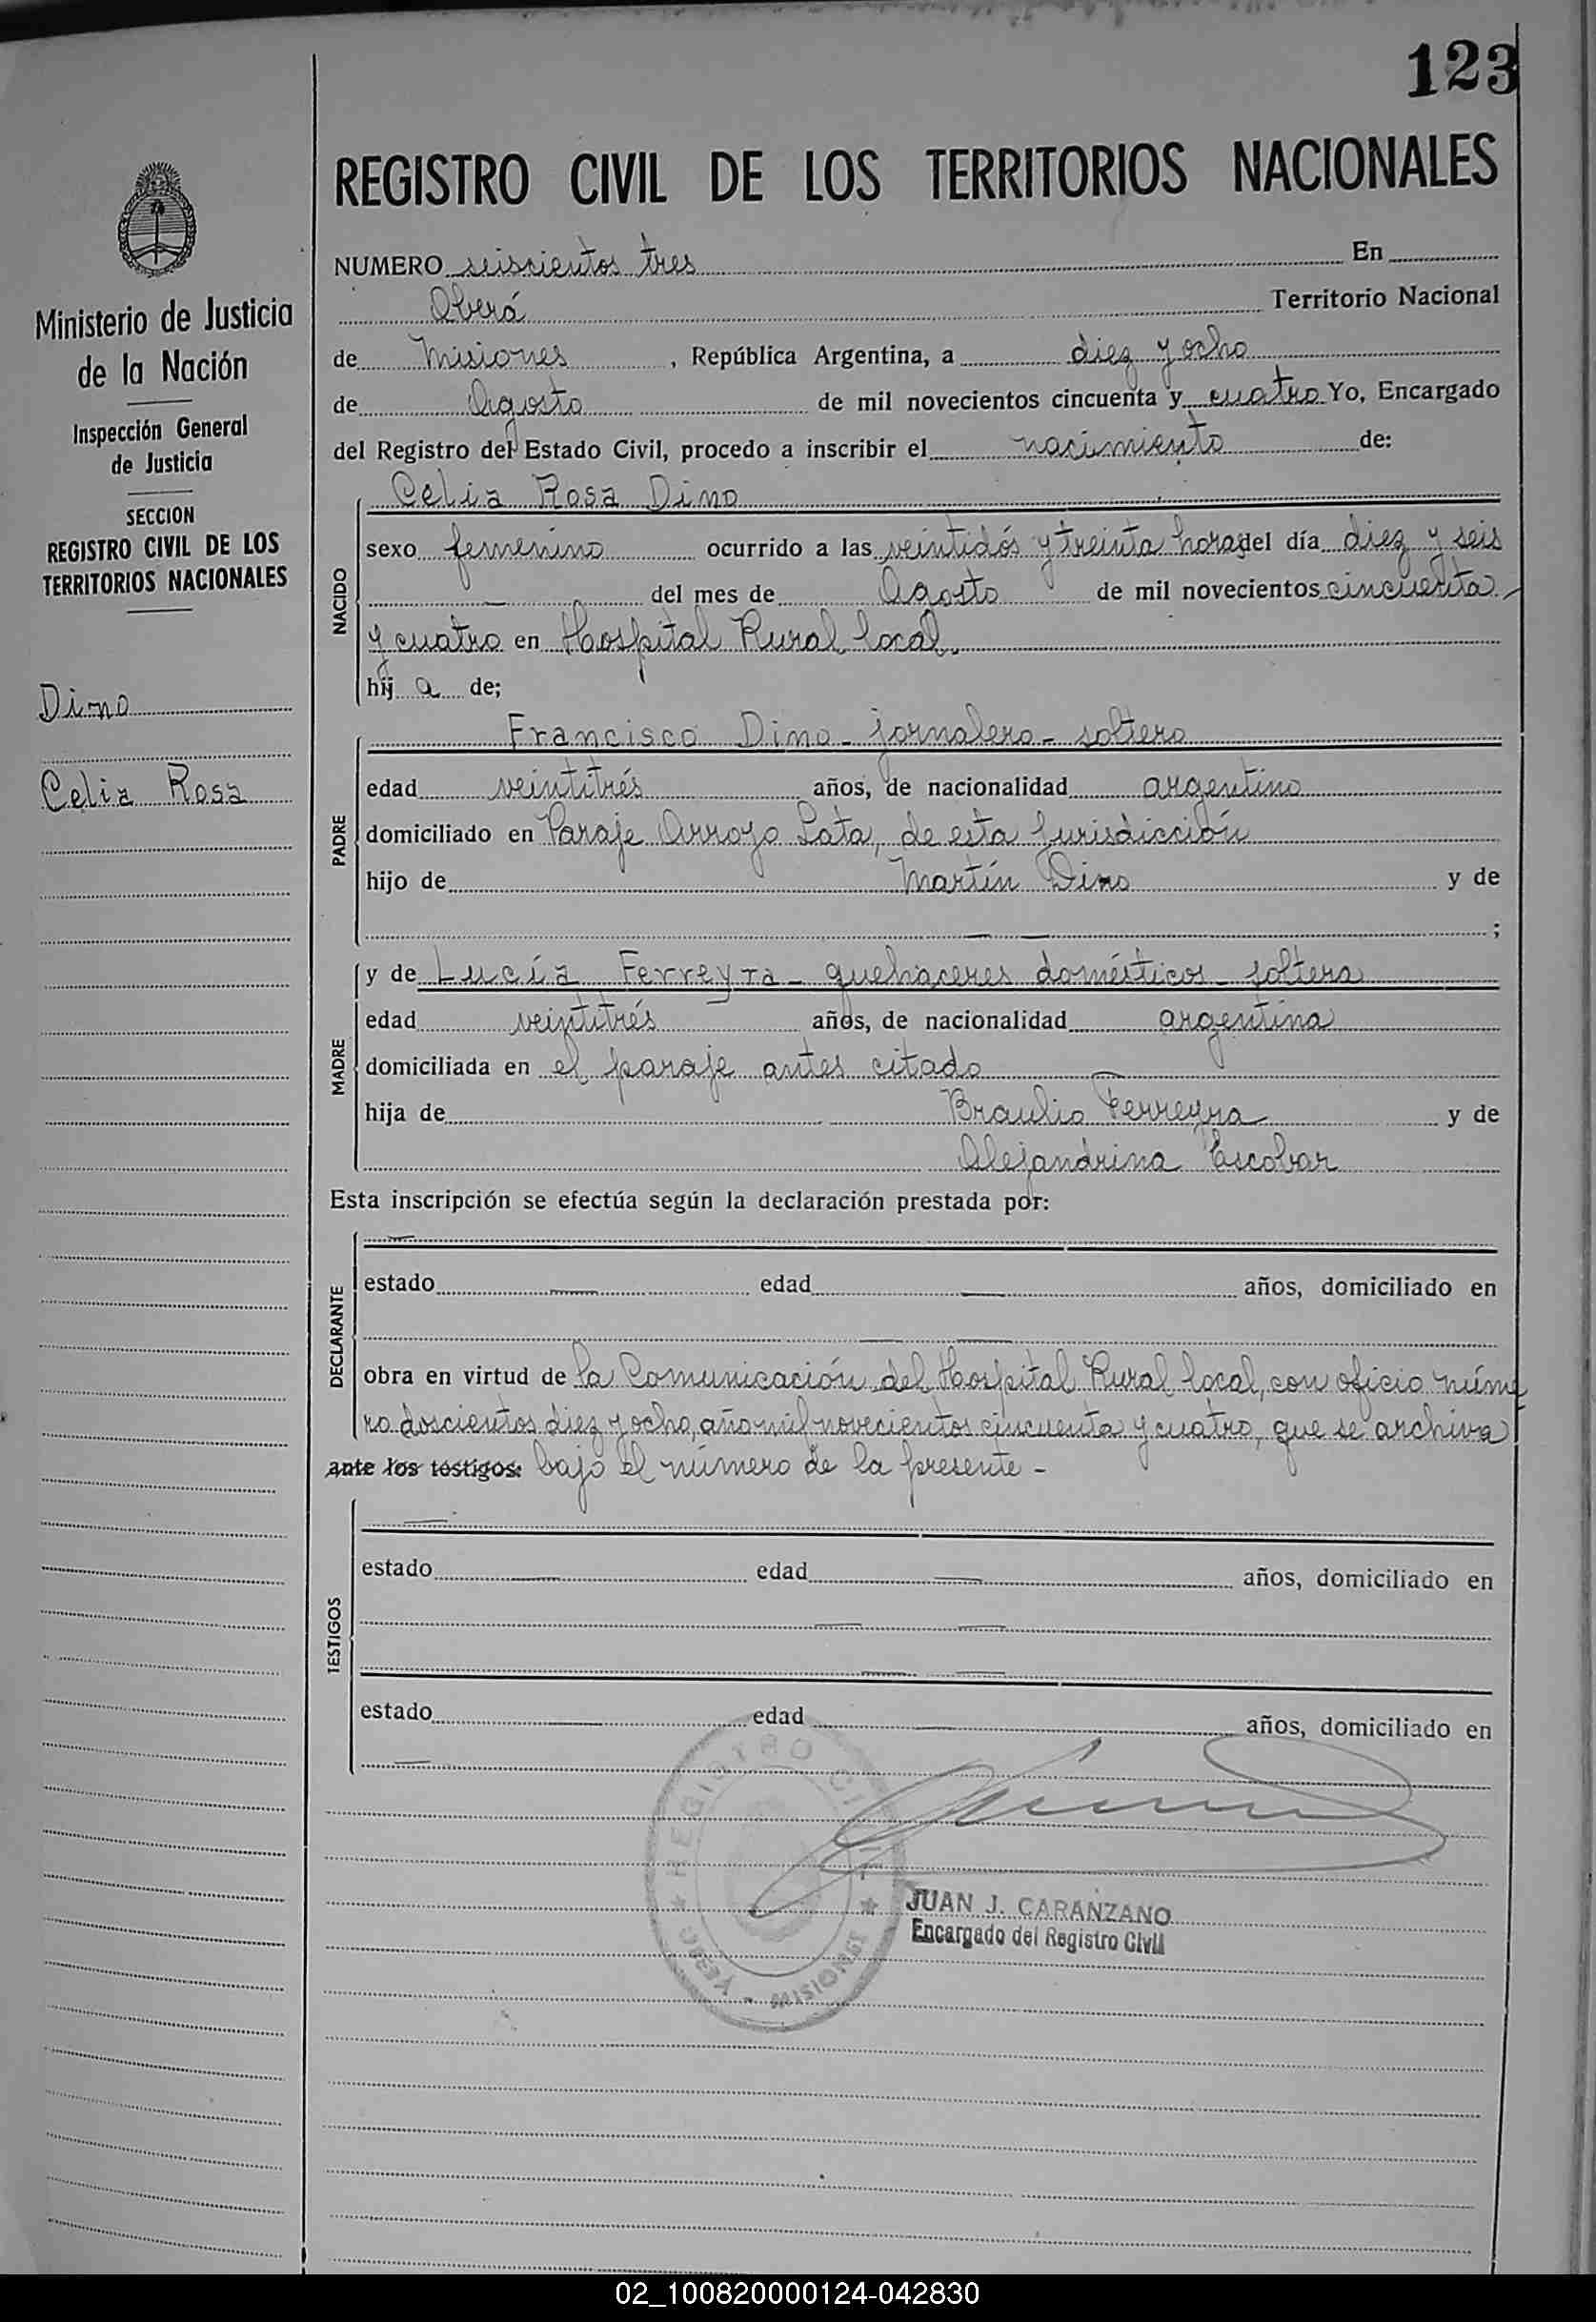 123
REGISTRO CIVIL DE LOS TERRITORIOS NACIONALES
Ministerio de Justicia
de la Nación
Inspección General
de Justicia
SECCION
REGISTRO CIVIL DE LOS
TERRITORIOS NACIONALES
Dino
Celia Rosa
NUMERO seiscientos tres En
Oberá Territorio Nacional
de Misiones , República Argentina, a diez y ocho
de Agosto de mil novecientos cincuenta y cuatro Yo, Encargado
del Registro del Estado Civil, procedo a inscribir el nacimiento de:
NACIDO
Celia Rosa Dino
sexo femenino ocurrido a las veintidós y treinta horas del día diez y seis
— del mes de Agosto de mil novecientos cincuenta
y cuatro en Hospital Rural local.
hij a de;
PADRE
Francisco Dino - jornalero - soltero
edad veintitrés años, de nacionalidad argentino
domiciliado en Paraje Arroyo Lata, de esta jurisdicción
hijo de Martín Dino y de
— — ;
MADRE
y de Lucía Ferreyra - quehaceres domésticos - soltera
edad veintitrés años, de nacionalidad argentina
domiciliada en el paraje antes citado
hija de Braulio Ferreyra y de
Alejandrina Escobar
Esta inscripción se efectúa según la declaración prestada por:
DECLARANTE
—
estado — edad — años, domiciliado en
— —
obra en virtud de la Comunicación del Hospital Rural local, con oficio núme
ro doscientos diez y ocho, año mil novecientos cincuenta y cuatro, que se archiva
ante los testigos: bajo el número de la presente -
TESTIGOS
—
estado — edad — años, domiciliado en
— —
— —
estado — edad — años, domiciliado en
—
REGISTRO CIVIL
MISIONES
JUAN J. CARANZANO
Encargado del Registro Civil
02_100820000124-042830